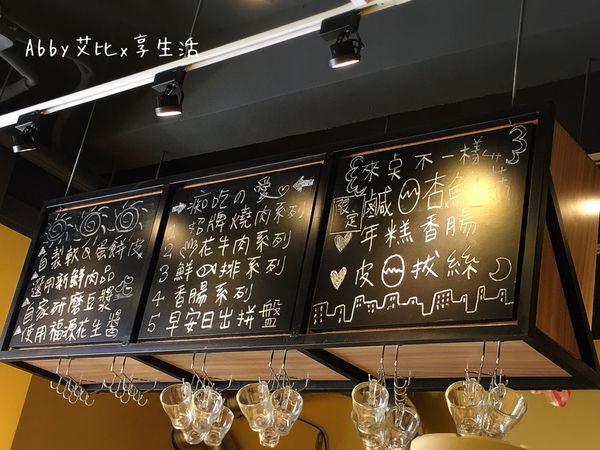 Abby艾比x享生活
自製軟Q蛋餅皮
選用新鮮肉品
自家研磨豆漿
使用福源花生醬
痴吃の愛
1 招牌燒肉系列
2 炒花牛肉系列
3 鮮魚排系列
4 香腸系列
5 早安日出拼盤
來穵不一樣
限定
鹹蛋杏鮑菇
年糕香腸
皮蛋拔絲